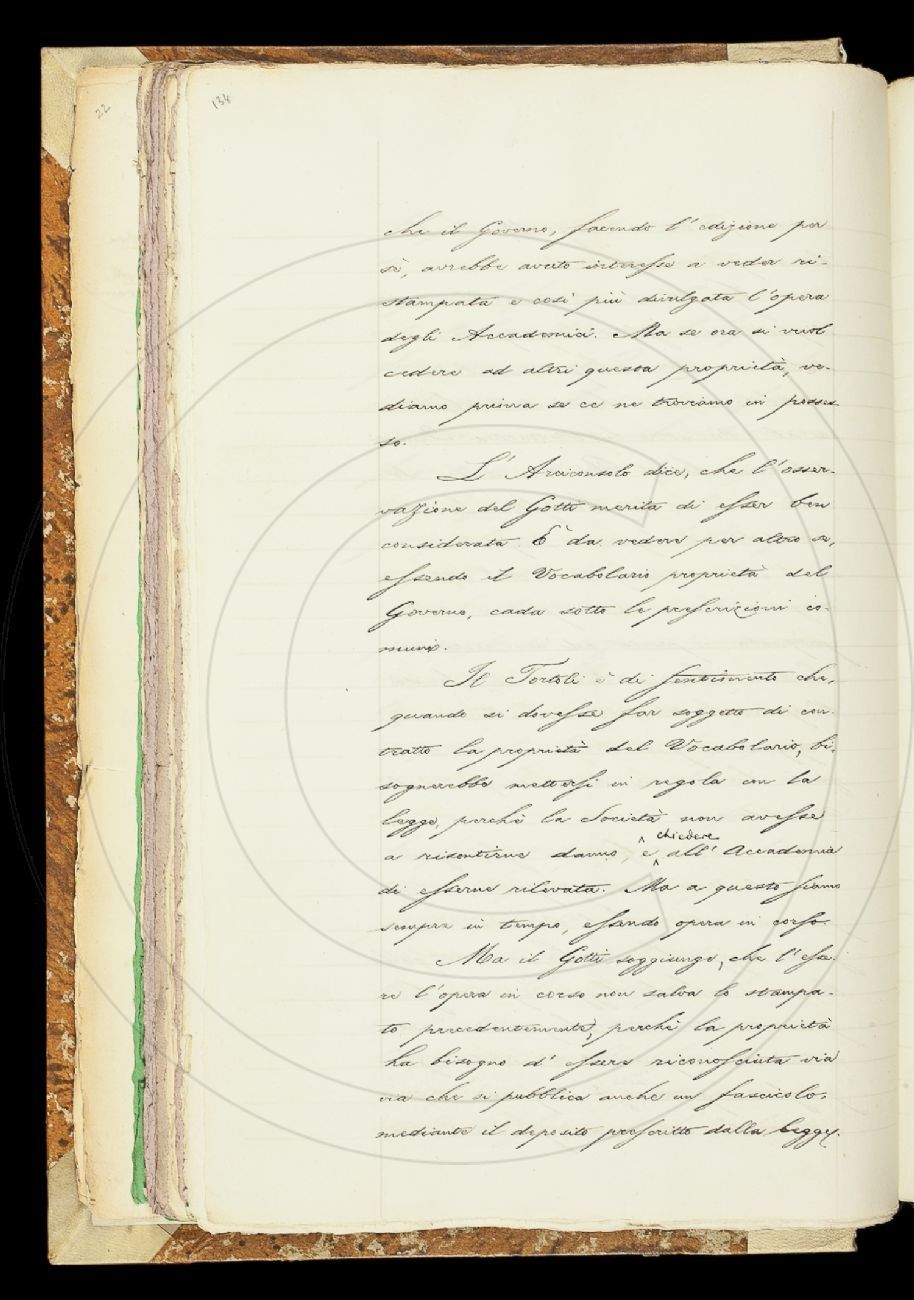 22
134
che il Governo, facendo l'edizione per
sè, avrebbe avuto interesse a veder ri-
stampata e così più divulgata l'opera
degli Accademici. Ma se ora si vuol
cedere ad altri questa proprietà, ve-
diamo prima se ce ne troviamo in posses-
so.
L'Arciconsolo dice, che l'osser-
vazione del Gotti merita di esser ben
considerata. È da vedere per altro se,
essendo il Vocabolario proprietà del
Governo, cada sotto le prescrizioni co-
muni.
Il Tortoli è di sentimento che,
quando si dovesse far soggetto di con-
tratto la proprietà del Vocabolario, bi-
sognerebbe mettersi in regola con la
legge, perchè la Società non avesse
a risentirne danno, e chiedere all'Accademia
di esserne rilevata. Ma a questo siamo
sempre in tempo, essendo opera in corso.
Ma il Gotti soggiunge, che l'esse-
re l'opera in corso non salva lo stampa-
to precedentemente, perchè la proprietà
ha bisogno d'essere riconosciuta via
via che si pubblica anche un fascicolo,
mediante il deposito prescritto dalla legge.